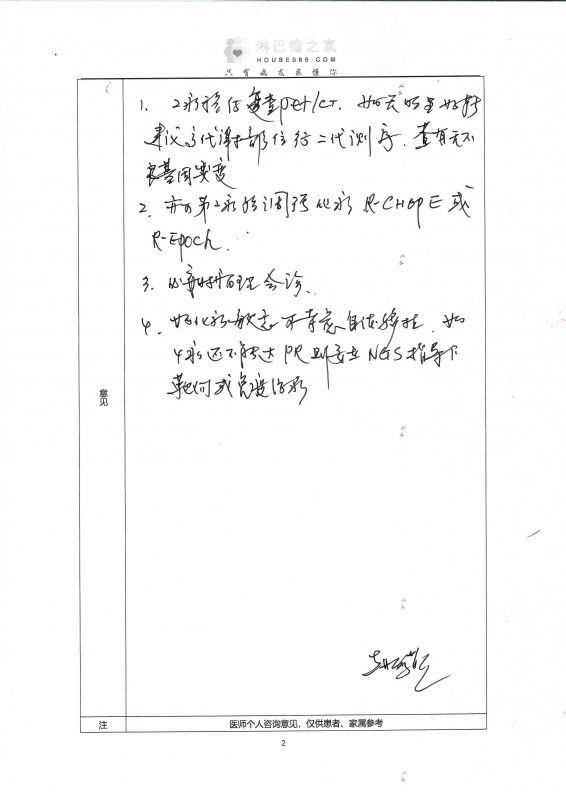 淋巴瘤之家
HOUSE086.COM
只有病友最懂你
1. 2疗程后复查PET/CT. 如无明显好转
建议高代谢部位行二代测序. 查有无不
良基因突变
2. 亦可第2疗程调强化疗 R-CHOPE 或
R-Epoch.
3. 必要时病理会诊、
4. 如化疗敏感可考虑自体移植. 如
4疗还不能达PR则考虑NGS指导下
靶向或免疫治疗
意见
注
医师个人咨询意见，仅供患者、家属参考
2